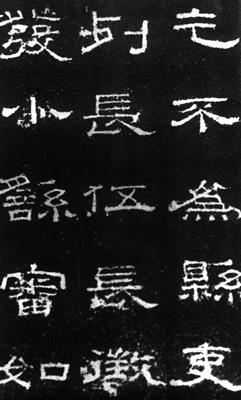 乞不為縣吏
列長伍長徵
發小繇審如